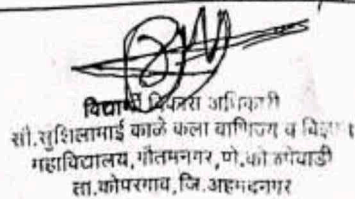 विद्यार्थी विकास अधिकारी
सौ.सुशिलामाई काळे कला वाणिज्य व विज्ञान
महाविद्यालय, गौतमनगर, पो.को ळपेवाडी
ता.कोपरगाव, जि.अहमदनगर